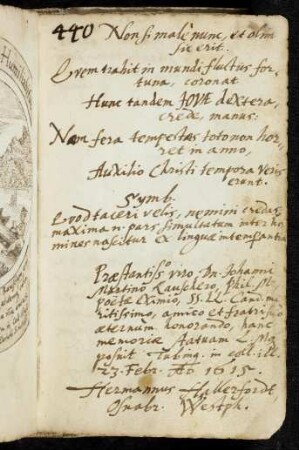 440 Non si malè nunc, et olim
sic erit.
Quem trahit in mundi fluctus for-
tuna, coronat
Hunc tandem JOVÆ dextera,
crede, manus:
Nam fera tempestas toto non hor-
ret in anno,
Auxilio Christi tempora veris
erunt.
Symb.
Quod taceri velis, nemini credas,
maxima n. pars simultatum inter ho-
mines nascitur ex linguæ intemperantia
Præstantiss.º viro, Dn. Johanni
Martino Rauschero, Phil. M.
Poëtæ eximio, SS. LL. Cand. me-
ritissimo, amico et fratri suo
æternum honorando, hanc
memoriæ statuam L. M.
posuit Tubing. in coll. ill.
23. Febr. Aõ 1615.
Hermannus Hellerfordt
Osnabr. Westph.
Humilitas